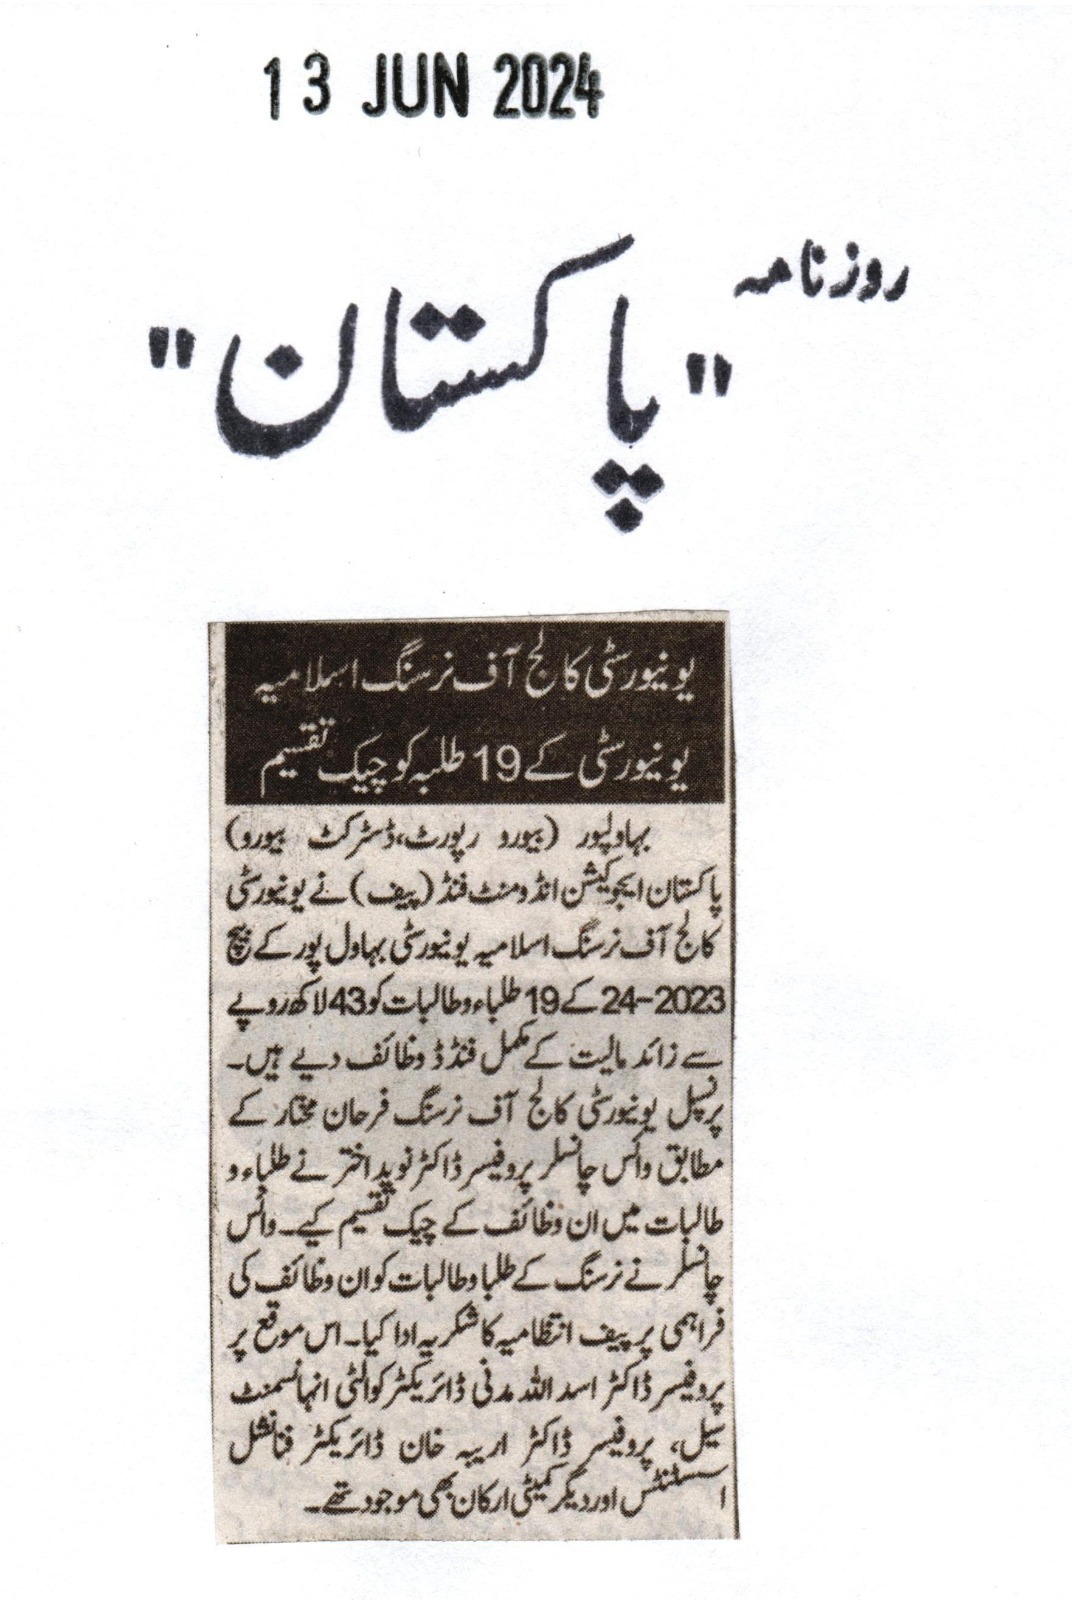 13 JUN 2024
روزنامہ
"پاکستان"
یونیورسٹی کالج آف نرسنگ اسلامیہ
یونیورسٹی کے 19 طلبہ کو چیک تقسیم
بہاولپور (بیورو رپورٹ، ڈسٹرکٹ بیورو)
پاکستان ایجوکیشن انڈومنٹ فنڈ (پیف) نے یونیورسٹی
کالج آف نرسنگ اسلامیہ یونیورسٹی بہاول پور کے بیچ
2023-24 کے 19 طلباء و طالبات کو 43 لاکھ روپے
سے زائد مالیت کے مکمل فنڈڈ وظائف دیے ہیں۔
پرنسپل یونیورسٹی کالج آف نرسنگ فرحان مختار کے
مطابق وائس چانسلر پروفیسر ڈاکٹر نوید اختر نے طلباء و
طالبات میں ان وظائف کے چیک تقسیم کیے۔ وائس
چانسلر نے نرسنگ کے طلبا و طالبات کو ان وظائف کی
فراہمی پر پیف انتظامیہ کا شکریہ ادا کیا۔ اس موقع پر
پروفیسر ڈاکٹر اسد اللہ مدنی ڈائریکٹر کوالٹی انہانسمنٹ
سیل، پروفیسر ڈاکٹر اریبہ خان ڈائریکٹر فنانشل
اسسٹنٹس اور دیگر کمیٹی ارکان بھی موجود تھے۔